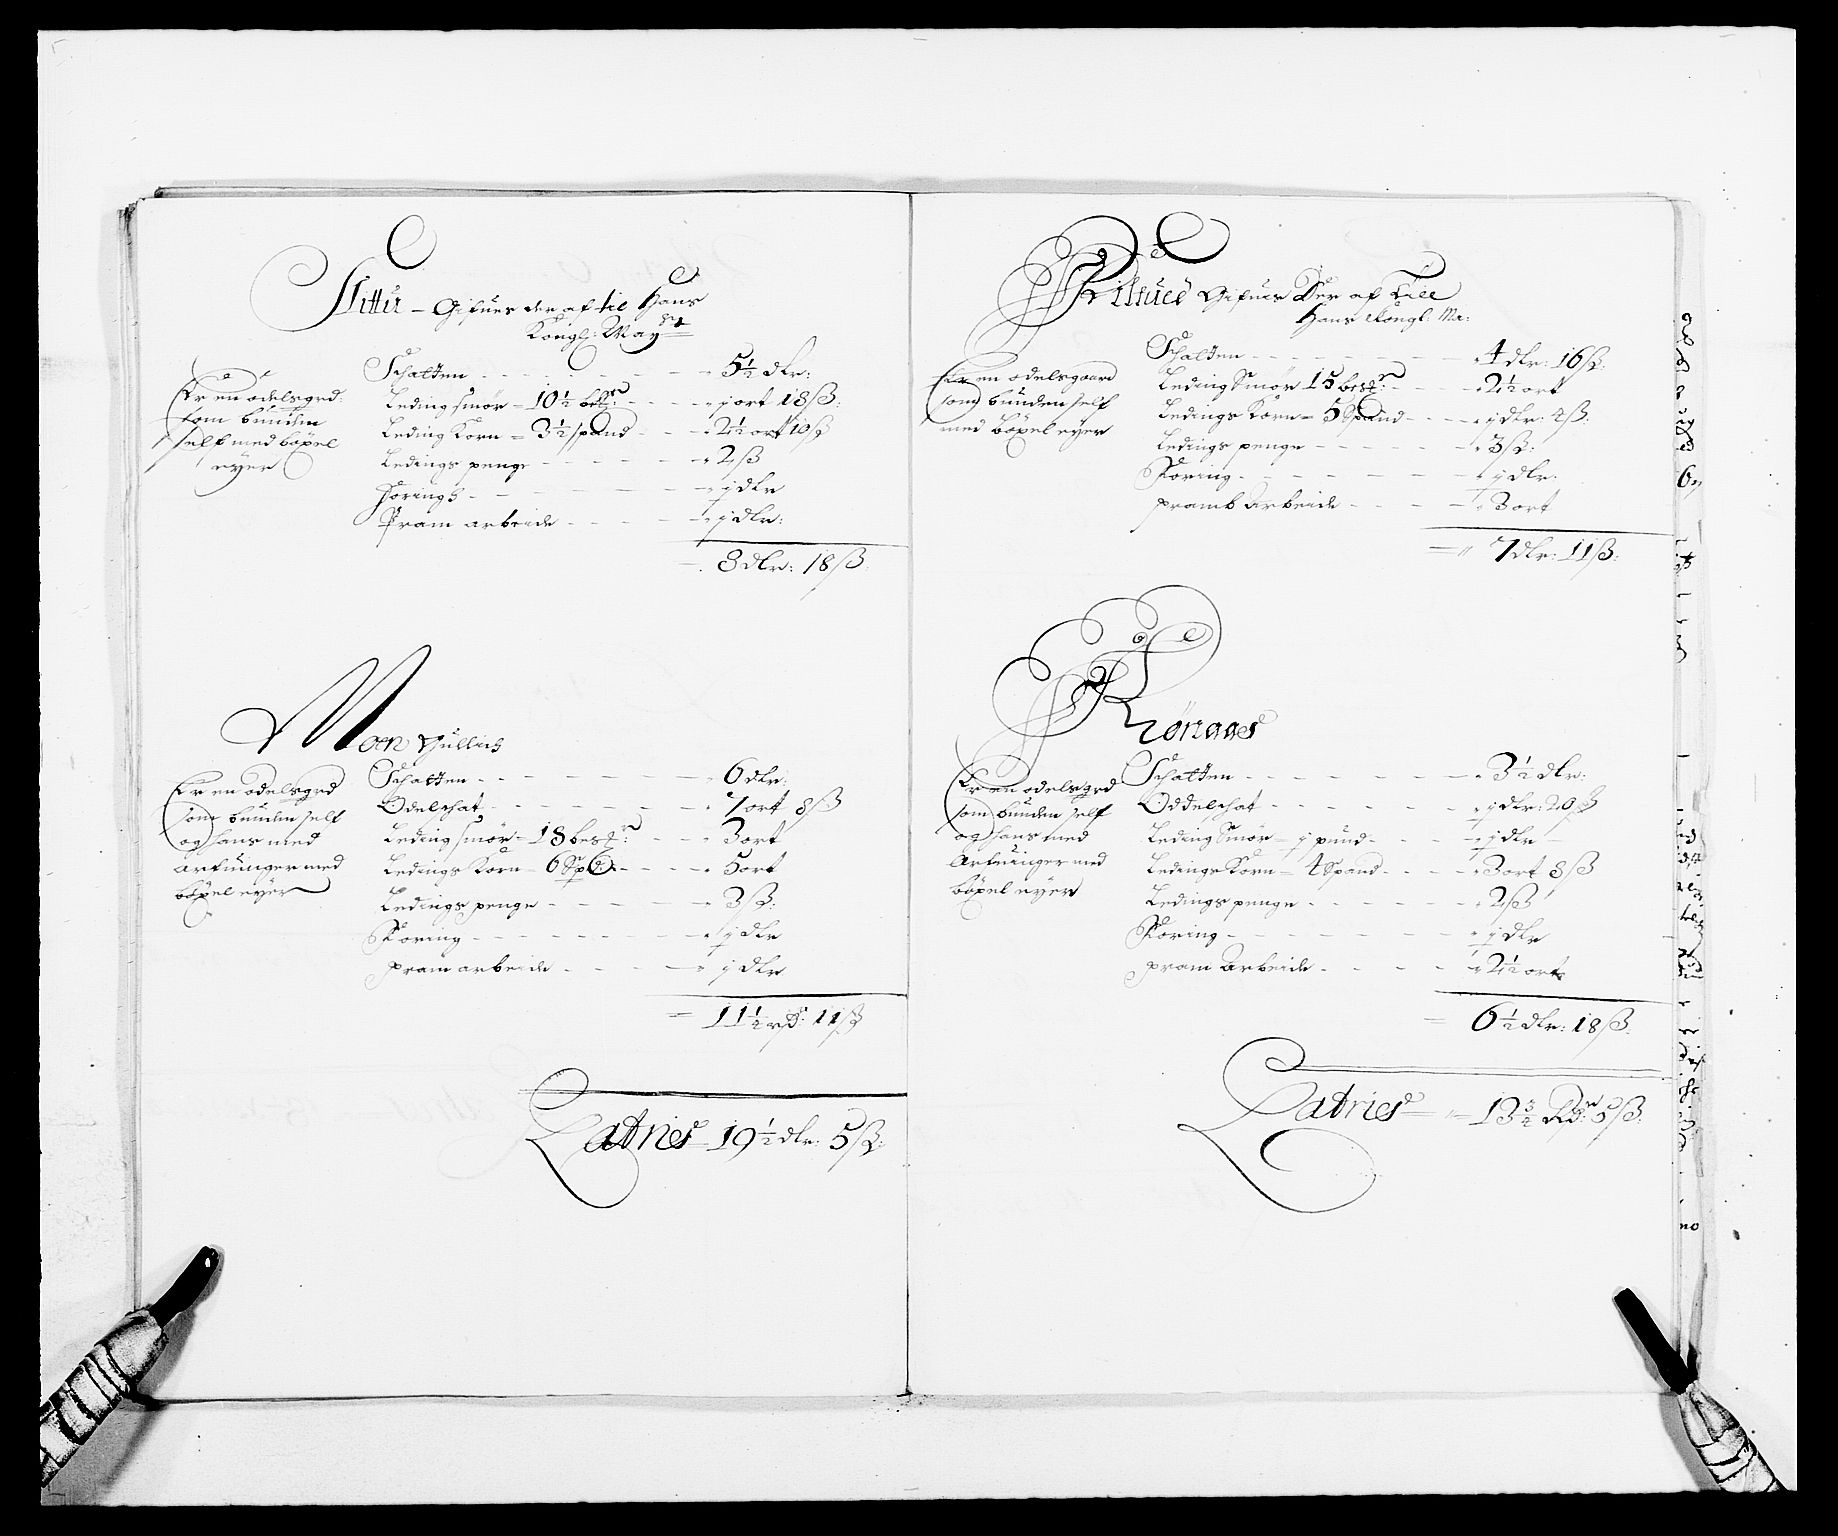 Sittu – Gifues der af til Hans
Kongl: Mayst
Er en odelsgrd:
som bunden
self med böxel
eyer
Schatten - - - 5½ dlr:
Leding smör = 10½ - - - j ort 18ß:
Leding Korn = 3½ spand - - - 2½ ort 10ß
Ledings penge - - - 2ß
Foring - - - j dlr
Pram arbeide - - - j dlr:
8 dlr: 18ß:
Moen
Er en odelsgrd
som bunden self
og hans med
arfuinger med
böxel eyer
Schatten - - - 6 dlr:
Odelschat - - - 1 ort 8ß
Leding smör = 18 - - - 3 ort
Ledings Korn = 6 Spd: - - - 5 ort
Ledings penge - - - 3ß:
Foring - - - j dlr
pram arbeide - - - j dlr
= 11½ rdr: 11ß
Latries 19½ dlr: 5ß:
Gifues Der af Till
Hans Kongl: Ma:
Er en odelsgaard
som bunden self
med böxel eyer
Schatten - - - 4 dlr: 16ß:
Leding Smör 15 - - - 2½ ort
Ledings Korn = 5 Spand - - - j dlr: 4ß:
Ledings penge - - - 3ß:
Foring - - - j dlr:
pramb arbeide - - - 3 ort
= 7 dlr: 11ß:
Rönaas
Er en odelsgrd
som bunden self
og hans med
Arfuinger med
böxel eyer
Schatten - - - 3½ dlr:
Oddelschat - - - j dlr: 20ß
Leding Smör = j pund - - - j dlr
Ledings Korn = 4 Spand - - - 3 ort 8ß
Ledings penge - - - 2ß
Foring - - - j dlr
pram Arbeide - - - 2½ ort
= 6½ dlr: 18ß:
Latries = 13½ Rdr: 5ß: